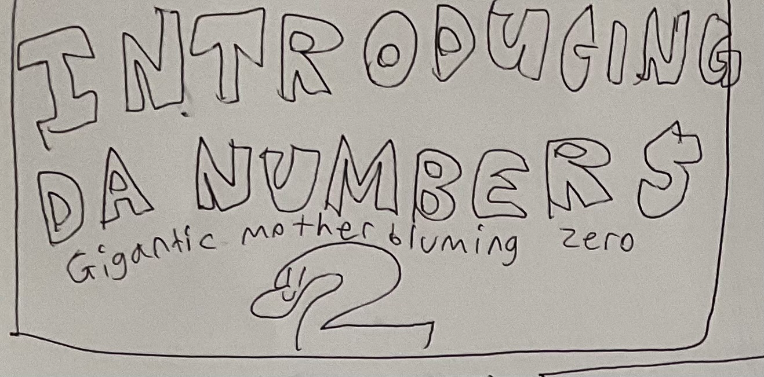 INTRODUGING
DA NUMBERS
Gigantic mother bluming zero
2